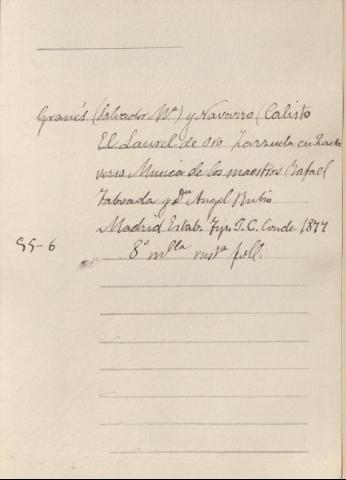 Granés (Salvador Mª) y Navarro (Calisto
El Laurel de Oro Zarzuela en 1 acto
verso Musica de los maestros Rafael
Taboada y Dn Angel Rubio
Madrid Estab. Tip. T. C. Conde 1877
99-6 8º mlla rustª foll: